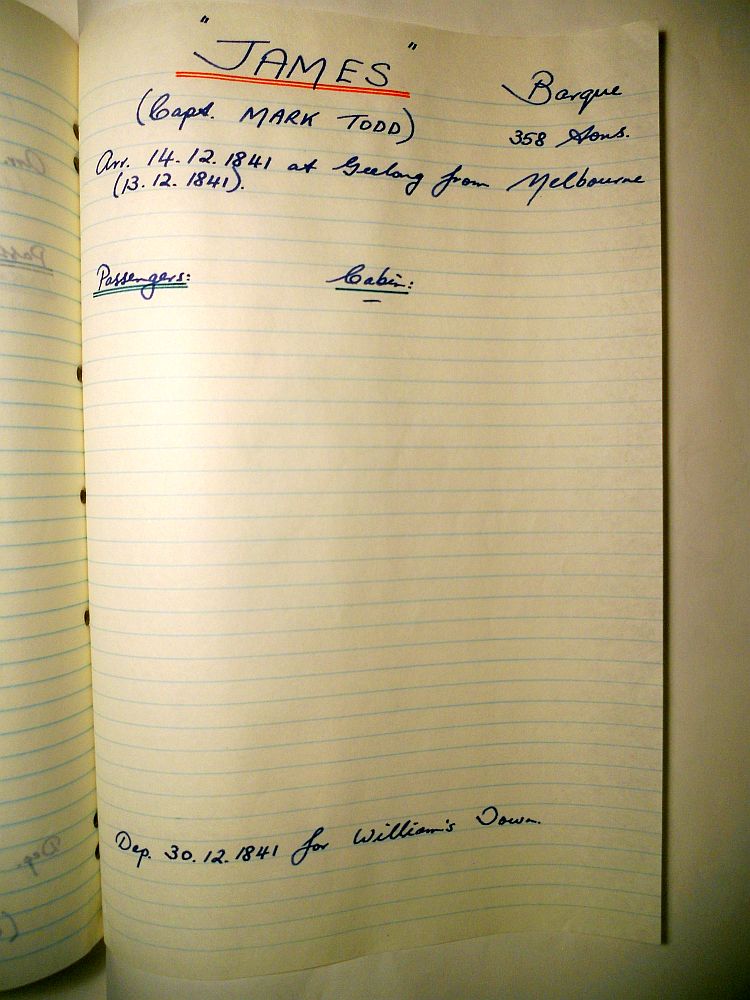 "JAMES"
Barque
(Capt. MARK TODD)
358 Tons.
Arr. 14.12.1841 at Geelong from Melbourne
(13.12.1841).
Passengers: Cabin:
—
Dep. 30.12.1841 for William's Town.